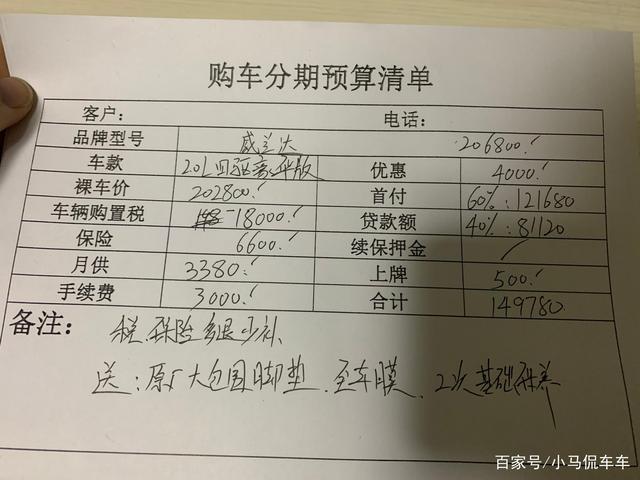 购车分期预算清单
客户: 电话:
品牌型号 威兰达 206800.!
车款 2.0L四驱豪华版 优惠 4000.!
裸车价 202800.! 首付 60%:121680
车辆购置税 18000.! 贷款额 40%:81120
保险 6600.! 续保押金 /
月供 3380.! 上牌 500.!
手续费 3000.! 合计 149780.
备注: 税.保险多退少补
送:原厂大包围脚垫.全车膜.2次基础保养
百家号/小马侃车车